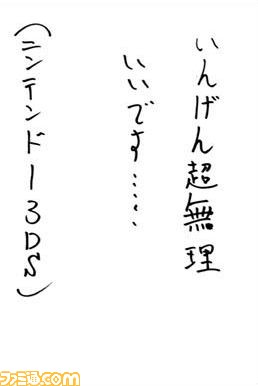 いんげん超無理
いいです……
（ニンテンドー3DS）
ファミ通.com